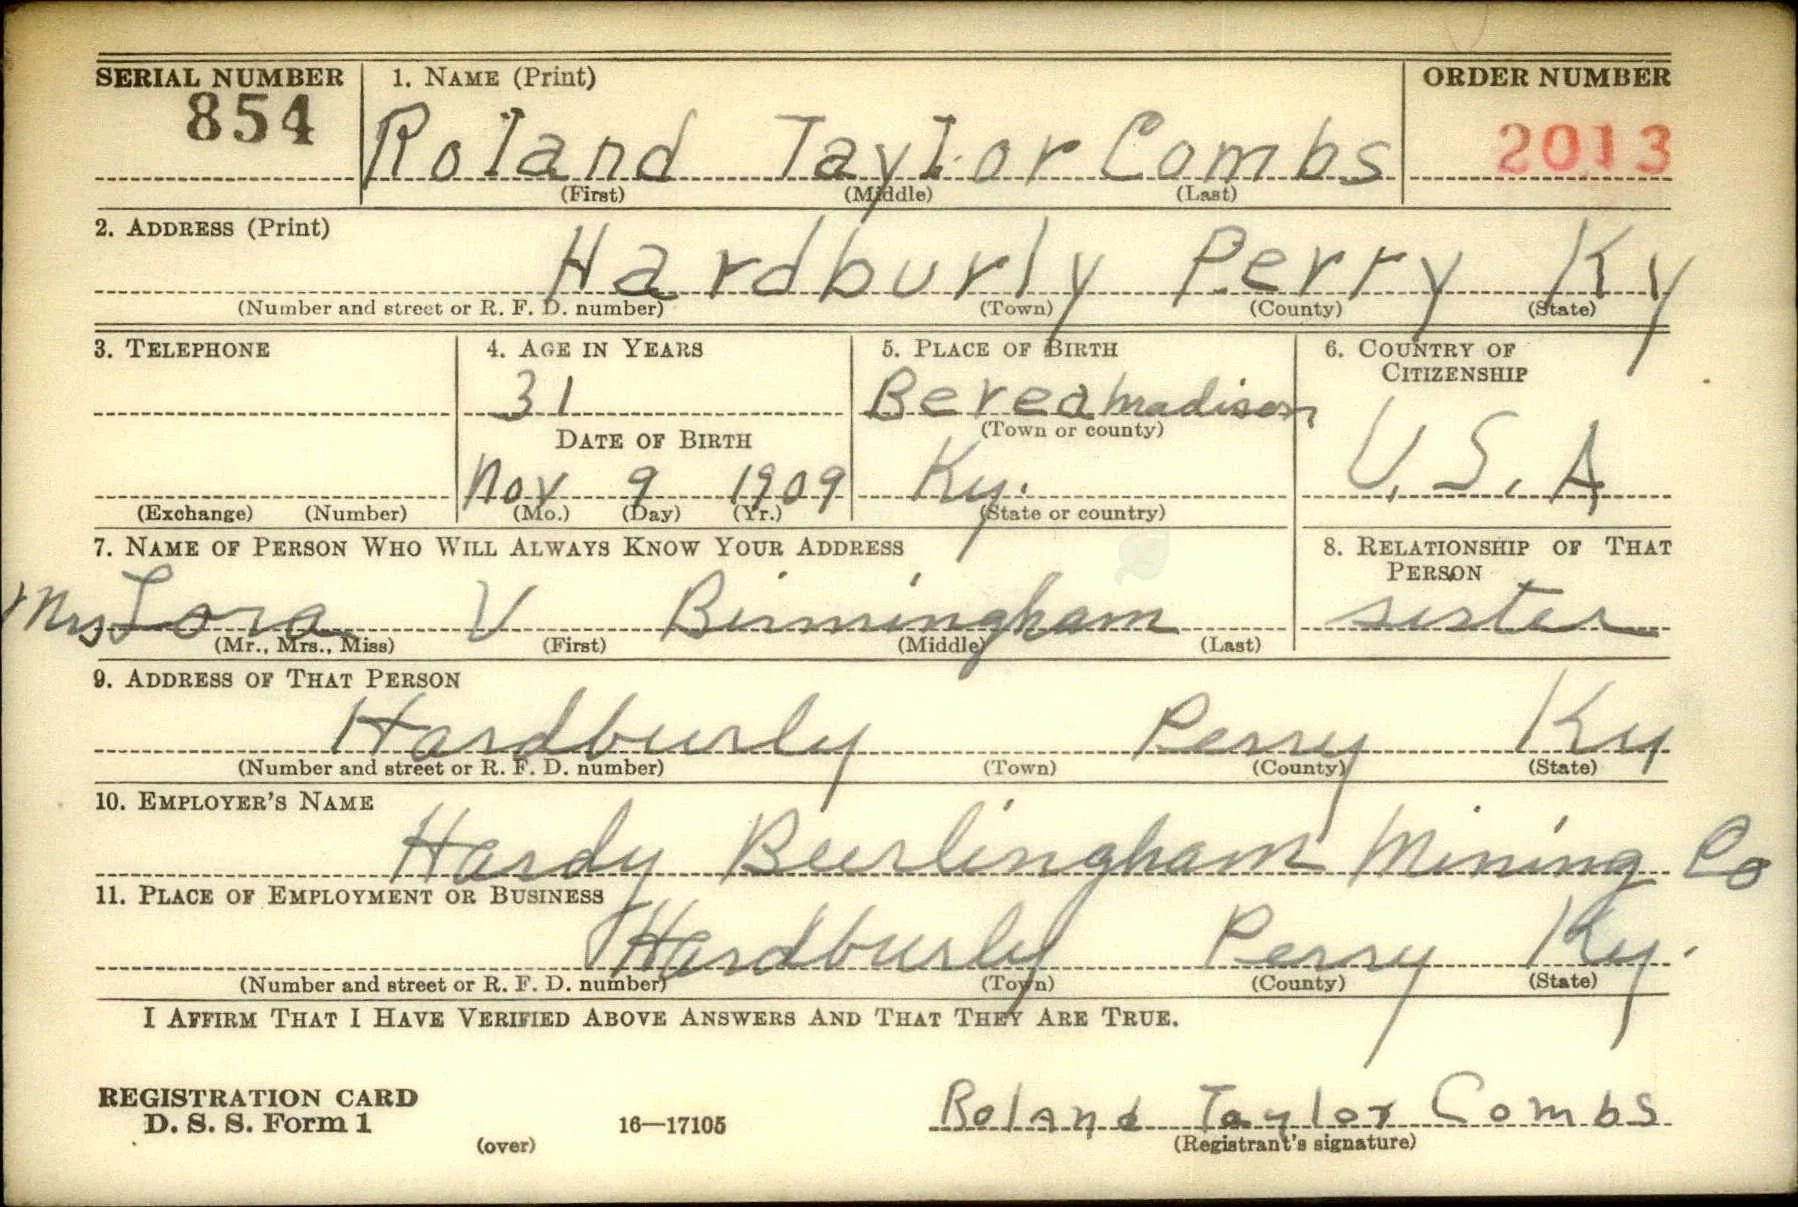 SERIAL NUMBER 1. NAME (Print) ORDER NUMBER
854 Roland Taylor Combs 2013
(First) (Middle) (Last)
2. ADDRESS (Print)
Hardburly Perry Ky
(Number and street or R. F. D. number) (Town) (County) (State)
3. TELEPHONE 4. AGE IN YEARS 5. PLACE OF BIRTH 6. COUNTRY OF CITIZENSHIP
31 Berea madison
DATE OF BIRTH (Town or county)
Nov 9 1909 Ky. U.S.A
(Exchange) (Number) (Mo.) (Day) (Yr.) (State or country)
7. NAME OF PERSON WHO WILL ALWAYS KNOW YOUR ADDRESS 8. RELATIONSHIP OF THAT PERSON
Mrs Lora V Birmingham sister
(Mr., Mrs., Miss) (First) (Middle) (Last)
9. ADDRESS OF THAT PERSON
Hardburly Perry Ky
(Number and street or R. F. D. number) (Town) (County) (State)
10. EMPLOYER'S NAME
Hardy Burlingham Mining Co
11. PLACE OF EMPLOYMENT OR BUSINESS
Hardburly Perry Ky.
(Number and street or R. F. D. number) (Town) (County) (State)
I AFFIRM THAT I HAVE VERIFIED ABOVE ANSWERS AND THAT THEY ARE TRUE.
REGISTRATION CARD
D. S. S. Form 1 16—17105 Roland Taylor Combs
(over) (Registrant's signature)